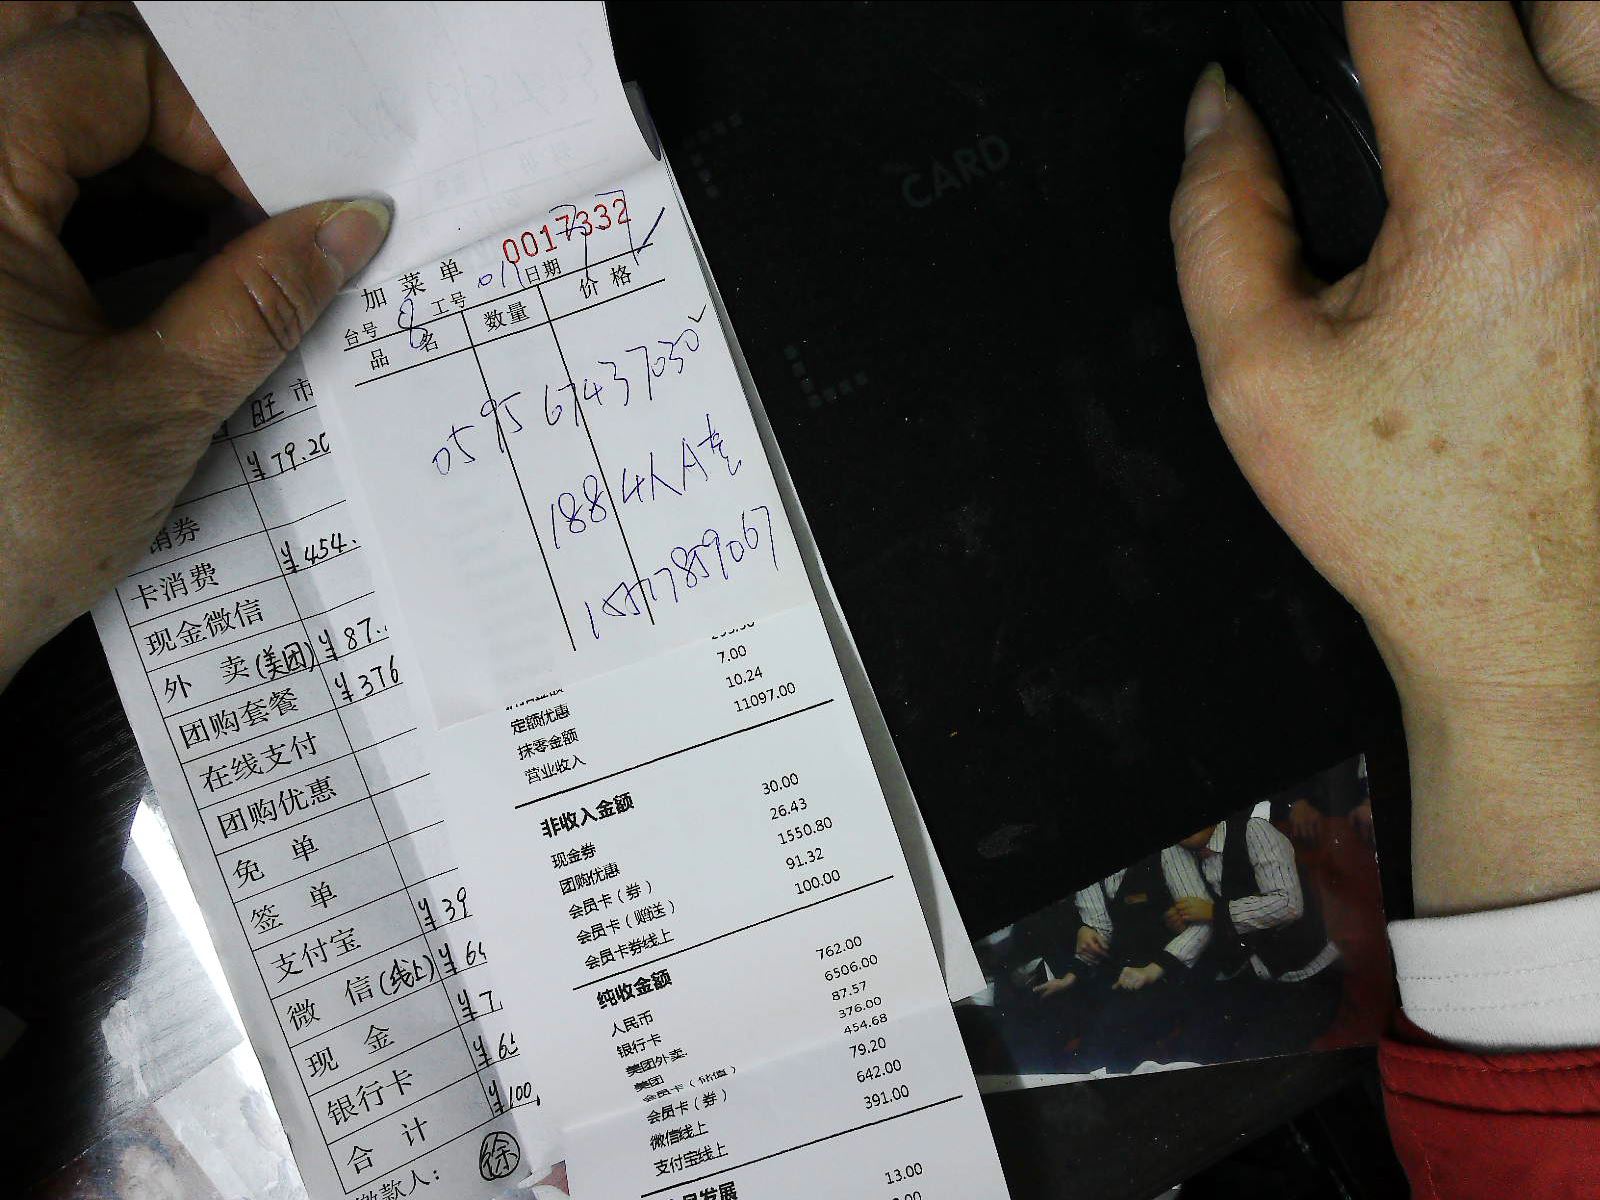 CARD
0017332
加菜单
台号 8 工号 011 日期
品名 数量 价格
0595 67437030
188 4人A套
旺市
¥79.20
消券
卡消费 ¥454.
现金微信
外卖(美团) ¥87.
团购套餐 ¥376
在线支付
团购优惠
免单
签单
支付宝 ¥39
微信(线上) ¥64
现金 ¥7
银行卡 ¥65
合计 ¥100
缴款人: 徐
7.00
定额优惠 10.24
抹零金额 11097.00
营业收入
非收入金额
现金券 30.00
团购优惠 26.43
会员卡(券) 1550.80
会员卡(赠送) 91.32
会员卡券线上 100.00
纯收金额
人民币 762.00
银行卡 6506.00
美团外卖 87.57
美团 376.00
会员卡(储值) 454.68
会员卡(券) 79.20
微信线上 642.00
支付宝线上 391.00
发展
13.00